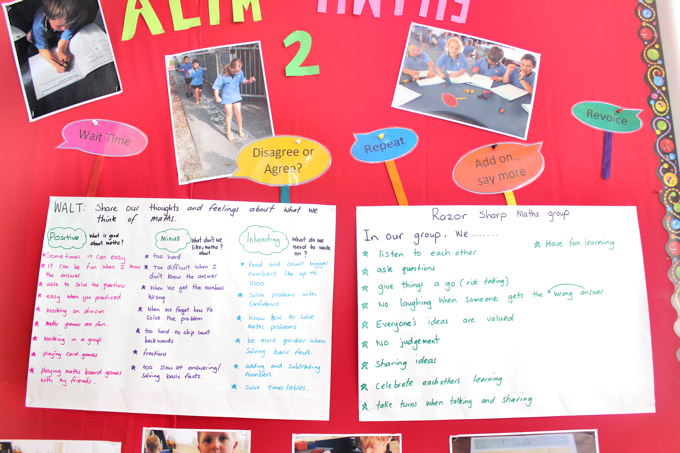 ALIM MATHS
2
Wait Time
Disagree or
Agree?
Repeat
Add on..
say more
Revoice
WALT: Share our thoughts and feelings about what we
think of maths.
Positive
What is good
about maths?
* Sometimes it can easy
* It can be fun when I know
the answer
* able to solve the questions
* easy when you practiced
* Working on division
* Maths games are fun.
* Working in a group
* playing card games
* playing maths board games
with my friends.
Minus
What don't we
like about
maths?
* too hard
* too difficult when I
don't know the answer
* When we get the numbers
Wrong
* When we forget how to
solve the problem
* too hard to skip count
backwards
* fractions
* too slow at answering/
Solving basic facts.
Interesting
What do we
need to work
on?
* Read and count bigger
numbers like up to
1000
* Solve problems with
Confidence
* Know how to solve
maths problems
* be more quicker when
Solving basic facts
* adding and subtracting
numbers
* Solve times tables.
Razor Sharp Maths group
In our group, We ........
* listen to each other
* ask questions
* give things a go (risk taking)
* No laughing when someone gets the wrong answer
* Everyone's ideas are valued
* No judgement
* Sharing ideas
* Celebrate each others learning
* take turns when talking and sharing
* Have fun learning